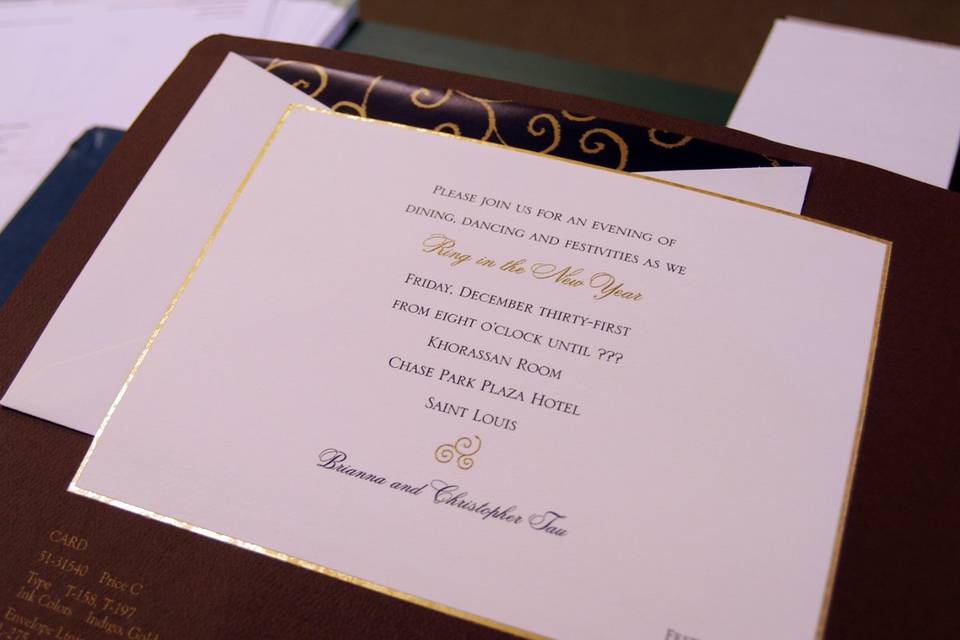 Please join us for an evening of
dining, dancing and festivities as we
Ring in the New Year
Friday, December thirty-first
from eight o'clock until ???
Khorassan Room
Chase Park Plaza Hotel
Saint Louis
Brianna and Christopher Tau
CARD
51-31540 Price C
Type T-158, T-197
Ink Colors Indigo, Gold
Envelope